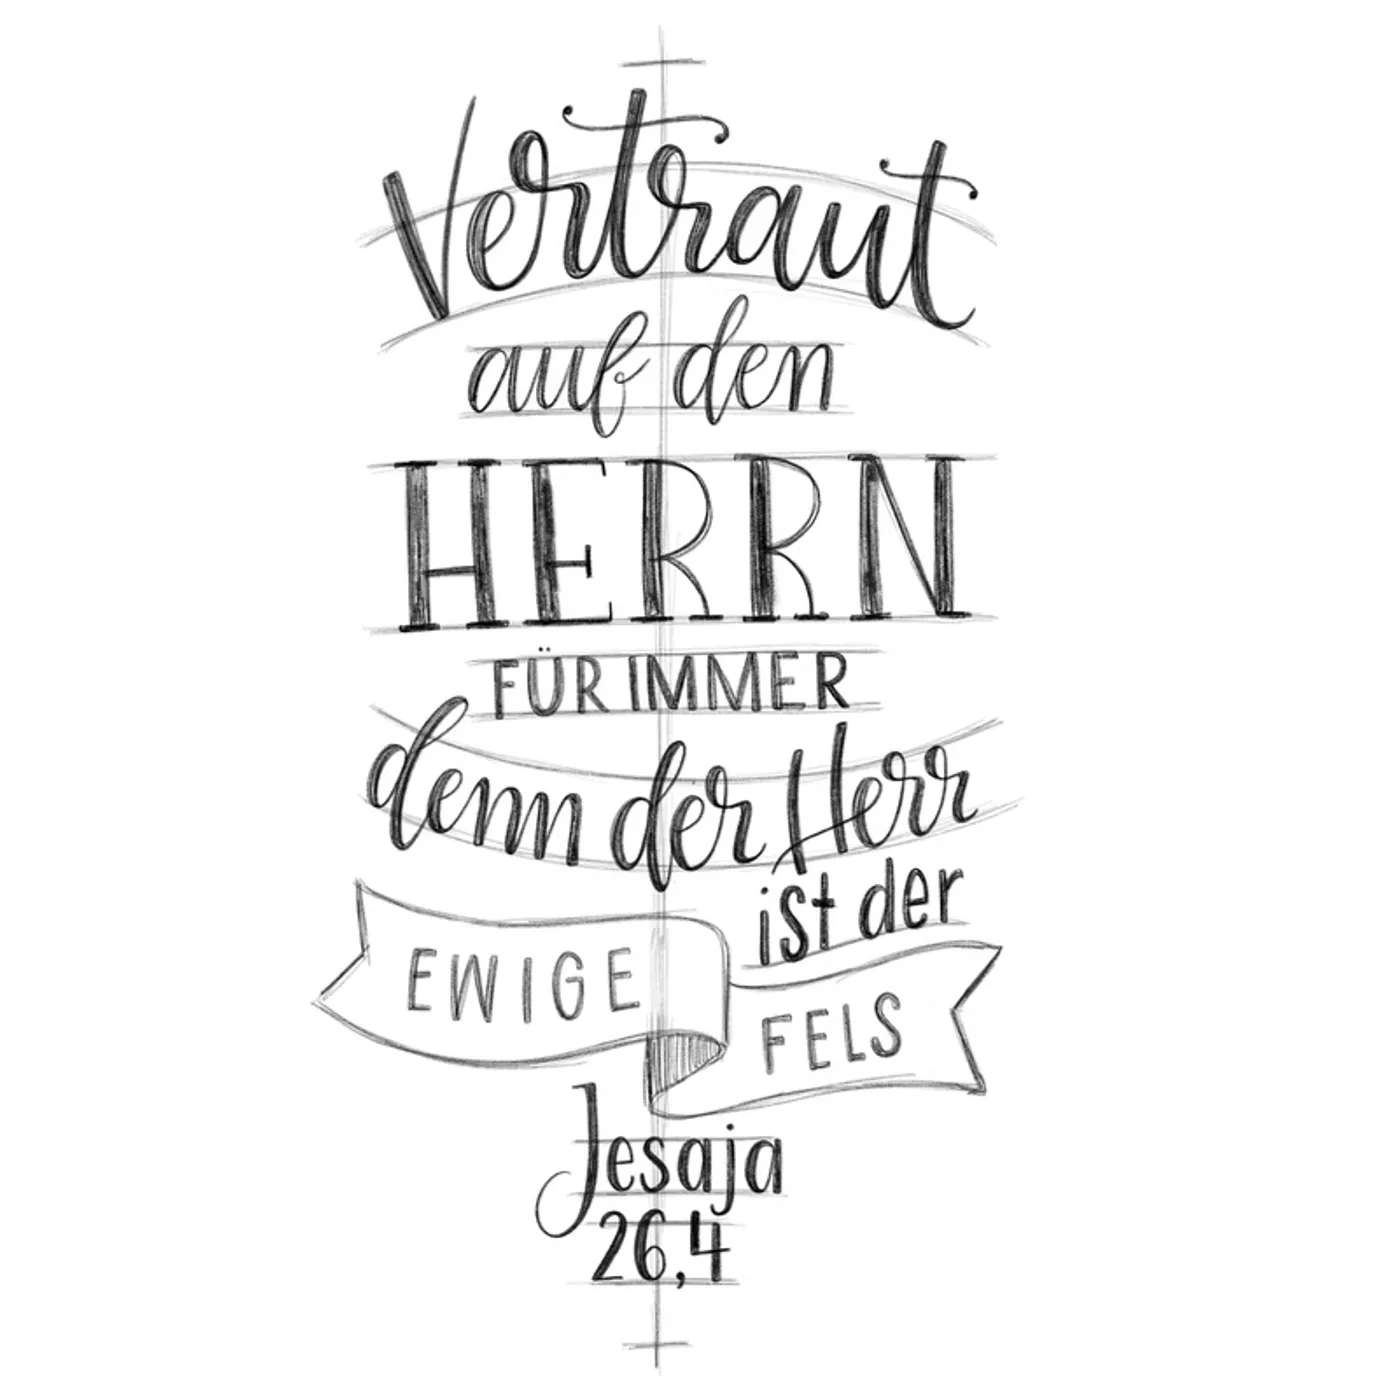 Vertraut
auf den
HERRN
FÜR IMMER
denn der Herr
ist der
EWIGE
FELS
Jesaja
26,4